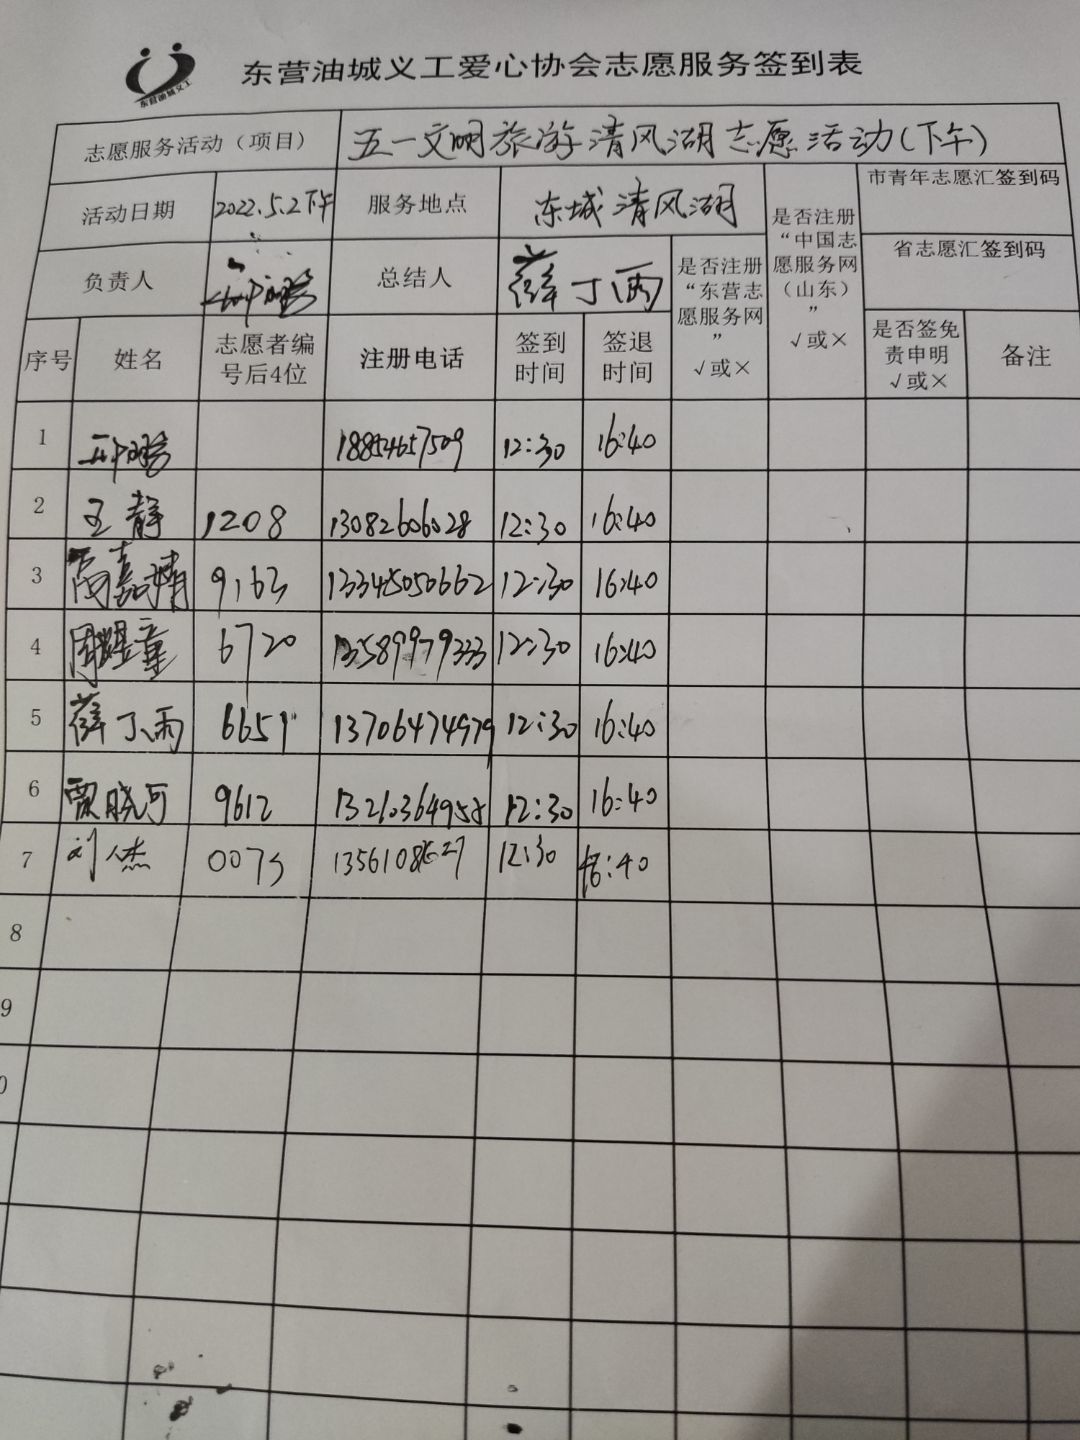 东营油城义工
东营油城义工爱心协会志愿服务签到表
志愿服务活动（项目） 五一文明旅游清风湖志愿活动(下午)
活动日期 2022.5.2下午 服务地点 东城清风湖
是否注册“东营志愿服务网” √或×
是否注册“中国志愿服务网（山东）” √或×
市青年志愿汇签到码
省志愿汇签到码
负责人 总结人 薛丁雨
序号 姓名 志愿者编号后4位 注册电话 签到时间 签退时间 是否签免责申明 √或× 备注
1 18854657509 12:30 16:40
2 王静 1208 13082606028 12:30 16:40
3 高嘉婧 9163 13345050662 12:30 16:40
4 周煜童 6720 13589979333 12:30 16:40
5 薛丁雨 6651 13706474979 12:30 16:40
6 贾晓河 9612 12:30 16:40
7 刘人杰 12:30 16:40
8
9